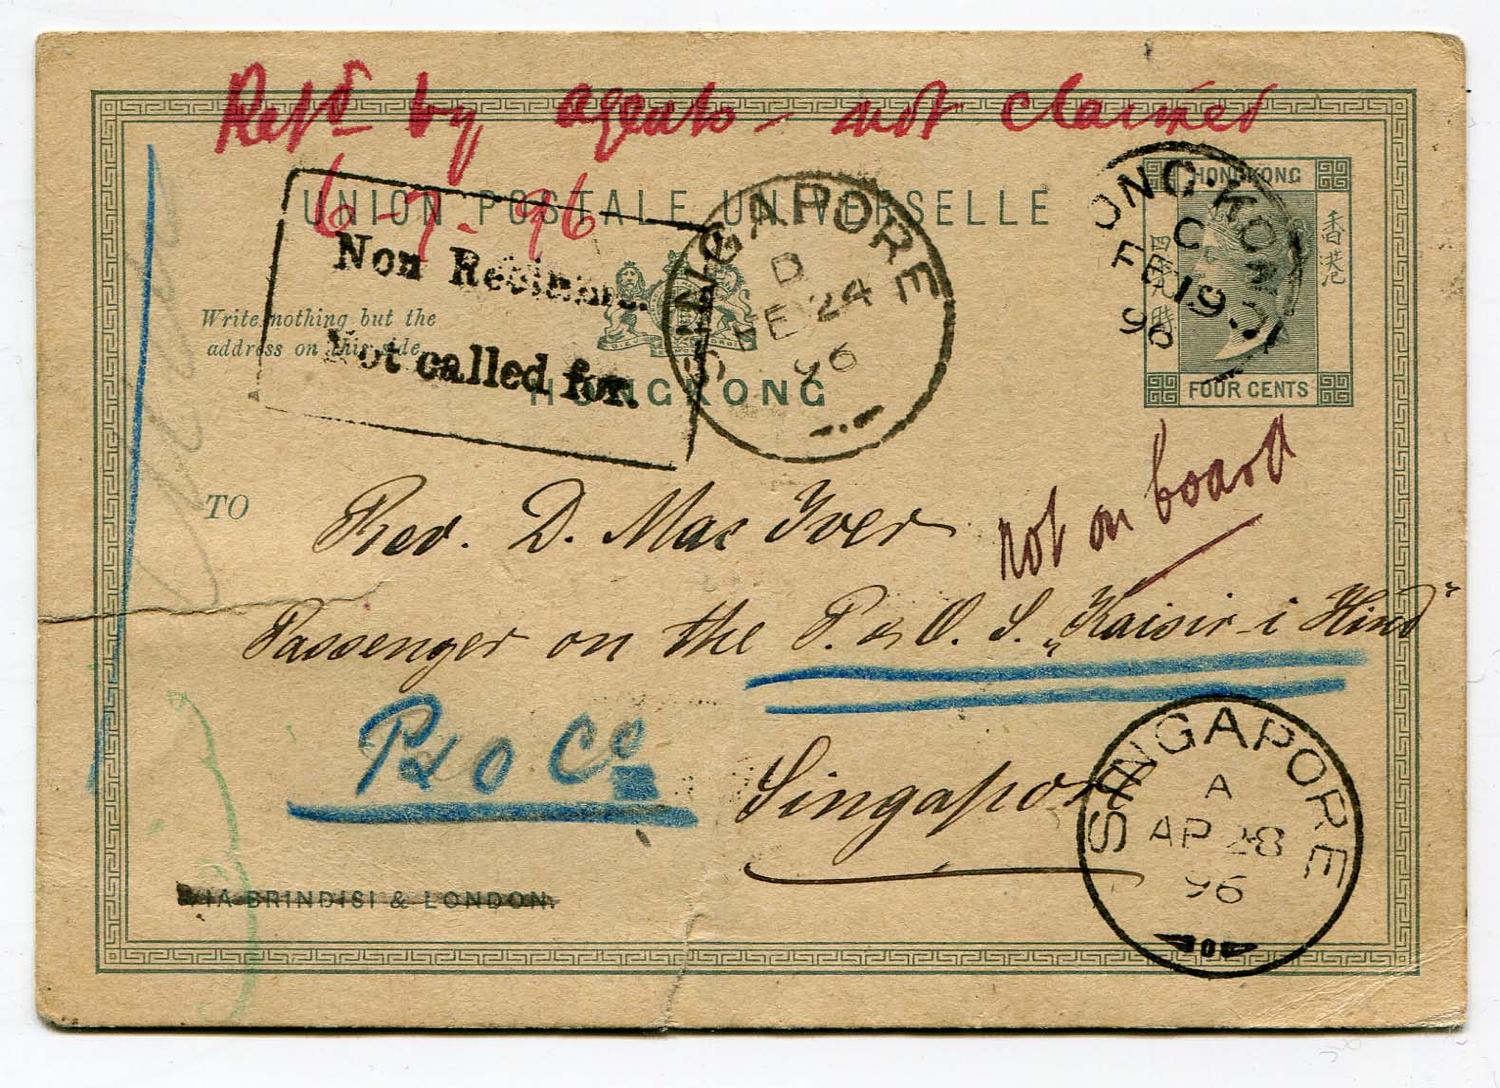 Retd by agents - not claimed
6-7-96
UNION POSTALE UNIVERSELLE
HONGKONG
香港
四先時
FOUR CENTS
HONG KONG
C
FE 19
96
SINGAPORE
D
FE 24
96
Non Reclamé.
Not called for.
Write nothing but the
address on this side.
HONGKONG
TO
Rev. D. Mac Iver
not on board
Passenger on the P. & O. S. „Kaisir-i Hind"
P & O Co
Singapore
VIA BRINDISI & LONDON.
SINGAPORE
A
AP 28
96